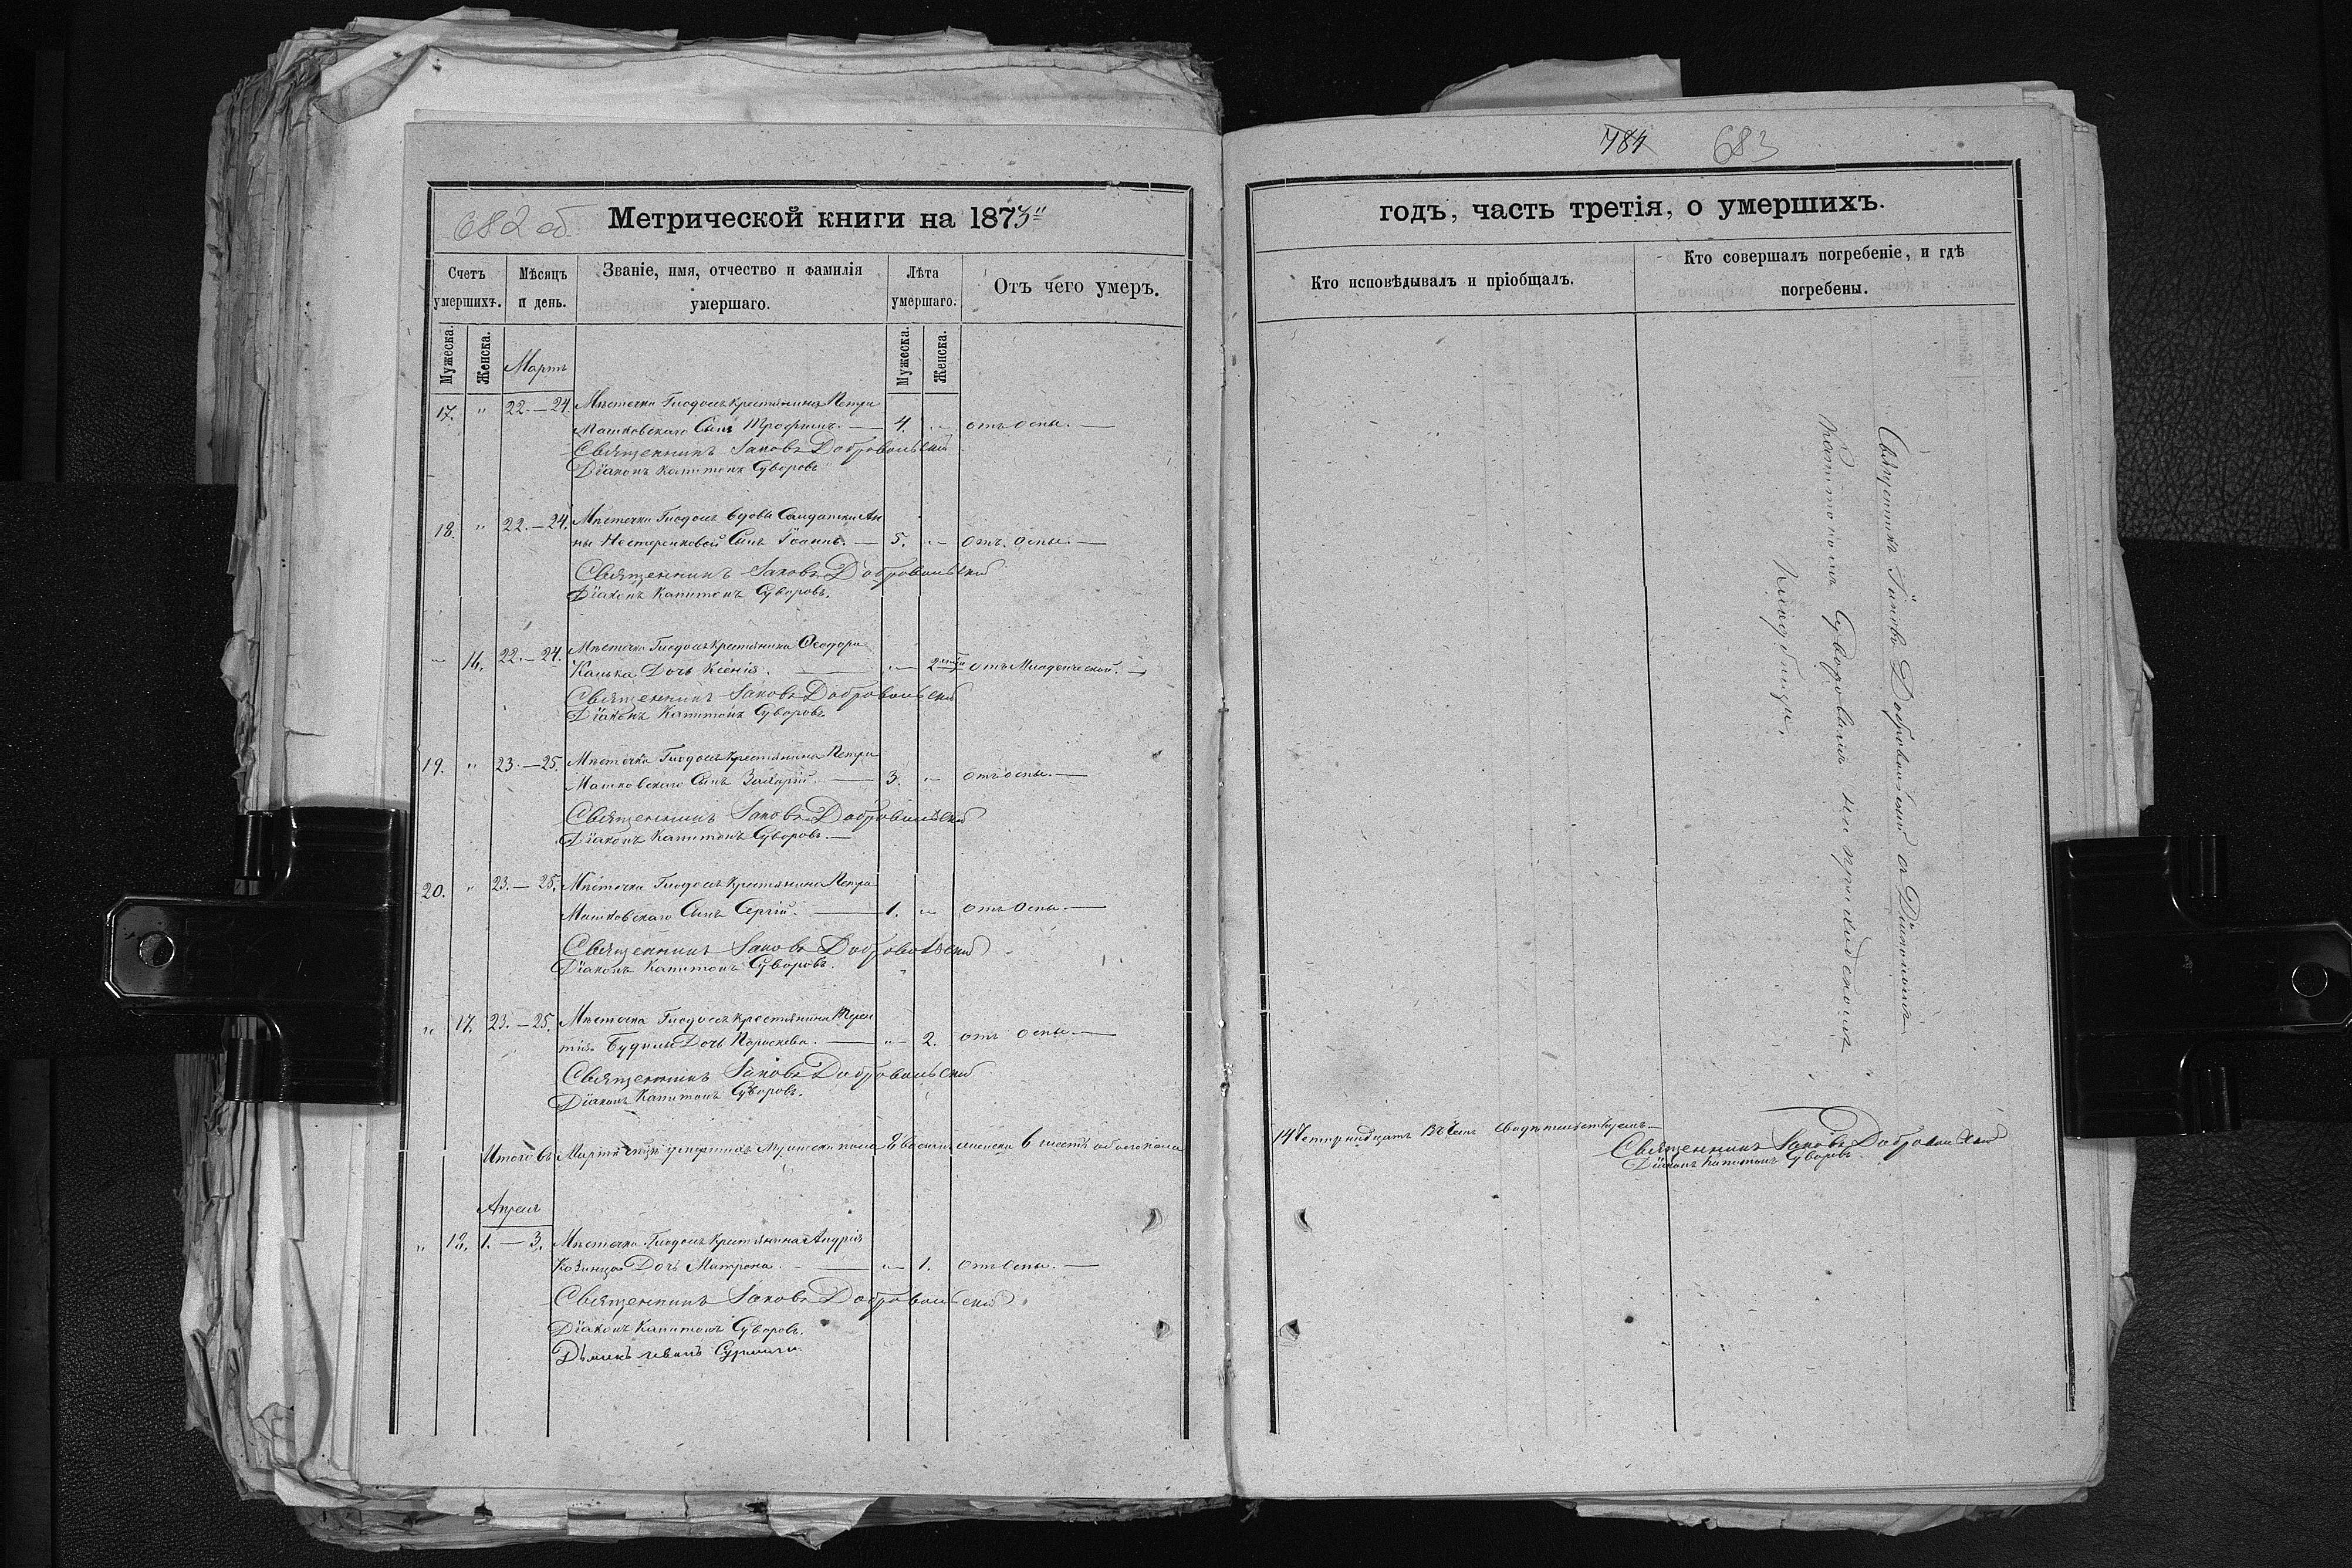 682 об
Метрической книги на 1873"
Счетъ умершихъ.
Мѣсяцъ и день.
Званіе, имя, отчество и фамилія умершаго.
Лѣта умершаго.
Отъ чего умеръ.
Мужеска.
Женска.
Мужеска.
Женска.
Мартъ
17. " 22.—24. Мѣстечка Гнодоса крестьянина Петра
Машковскаго Сынъ Трофимъ. — 4. "— отъ оспы. —
Священникъ Іаковъ Добровольскій
Діаконъ Капитонъ Суворовъ
18. " 22.—24. Мѣстечка Гнодоса вдовы Солдатки Ан
ны Нестеренковой Сынъ Іоаннъ. — 5. "— отъ оспы. —
Священникъ Іаковъ Добровольскій
Діаконъ Капитонъ Суворовъ.
"— 16. 22.—24. Мѣстечка Гнодоса крестьянина Ѳеодора
Дочь Ксенія. — "— 2 отъ Младенческой. —
Священникъ Іаковъ Добровольскій
Діаконъ Капитонъ Суворовъ
19. " 23.—25. Мѣстечка Гнодоса крестьянина Петра
Машковскаго Сынъ Захарій. — 3. "— отъ оспы. —
Священникъ Іаковъ Добровольскій
Діаконъ Капитонъ Суворовъ. —
20. " 23.—25. Мѣстечка Гнодоса крестьянина Петра
Машковскаго Сынъ Сергій. — 1. "— отъ оспы. —
Священникъ Іаковъ Добровольскій
Діаконъ Капитонъ Суворовъ.
" 17. 23.—25. Мѣстечка Гнодоса крестьянина Терен
тія Будилы Дочь Параскева. — "— 2. отъ оспы. —
Священникъ Іаковъ Добровольскій
Діаконъ Капитонъ Суворовъ.
Итого въ Мартѣ умершихъ Мужеска пола 8 восемь женска 6 шесть обоего пола
Апрель
" 18. 1.—3. Мѣстечка Гнодоса крестьянина Андрія
Козинца Дочь Матрона. — "— 1. отъ оспы. —
Священникъ Іаковъ Добровольскій
Діаконъ Капитонъ Суворовъ.
784 683
годъ, часть третія, о умершихъ.
Кто исповѣдывалъ и пріобщалъ.
Кто совершалъ погребеніе, и гдѣ погребены.
Священникъ Іаковъ Добровольскій съ Діакономъ
Капитономъ Суворовымъ на приходскомъ
Кладбищѣ.
14 Четырнадцать въ чемъ свидѣтельствуемъ —
Священникъ Іаковъ Добровольскій
Діаконъ Капитонъ Суворовъ